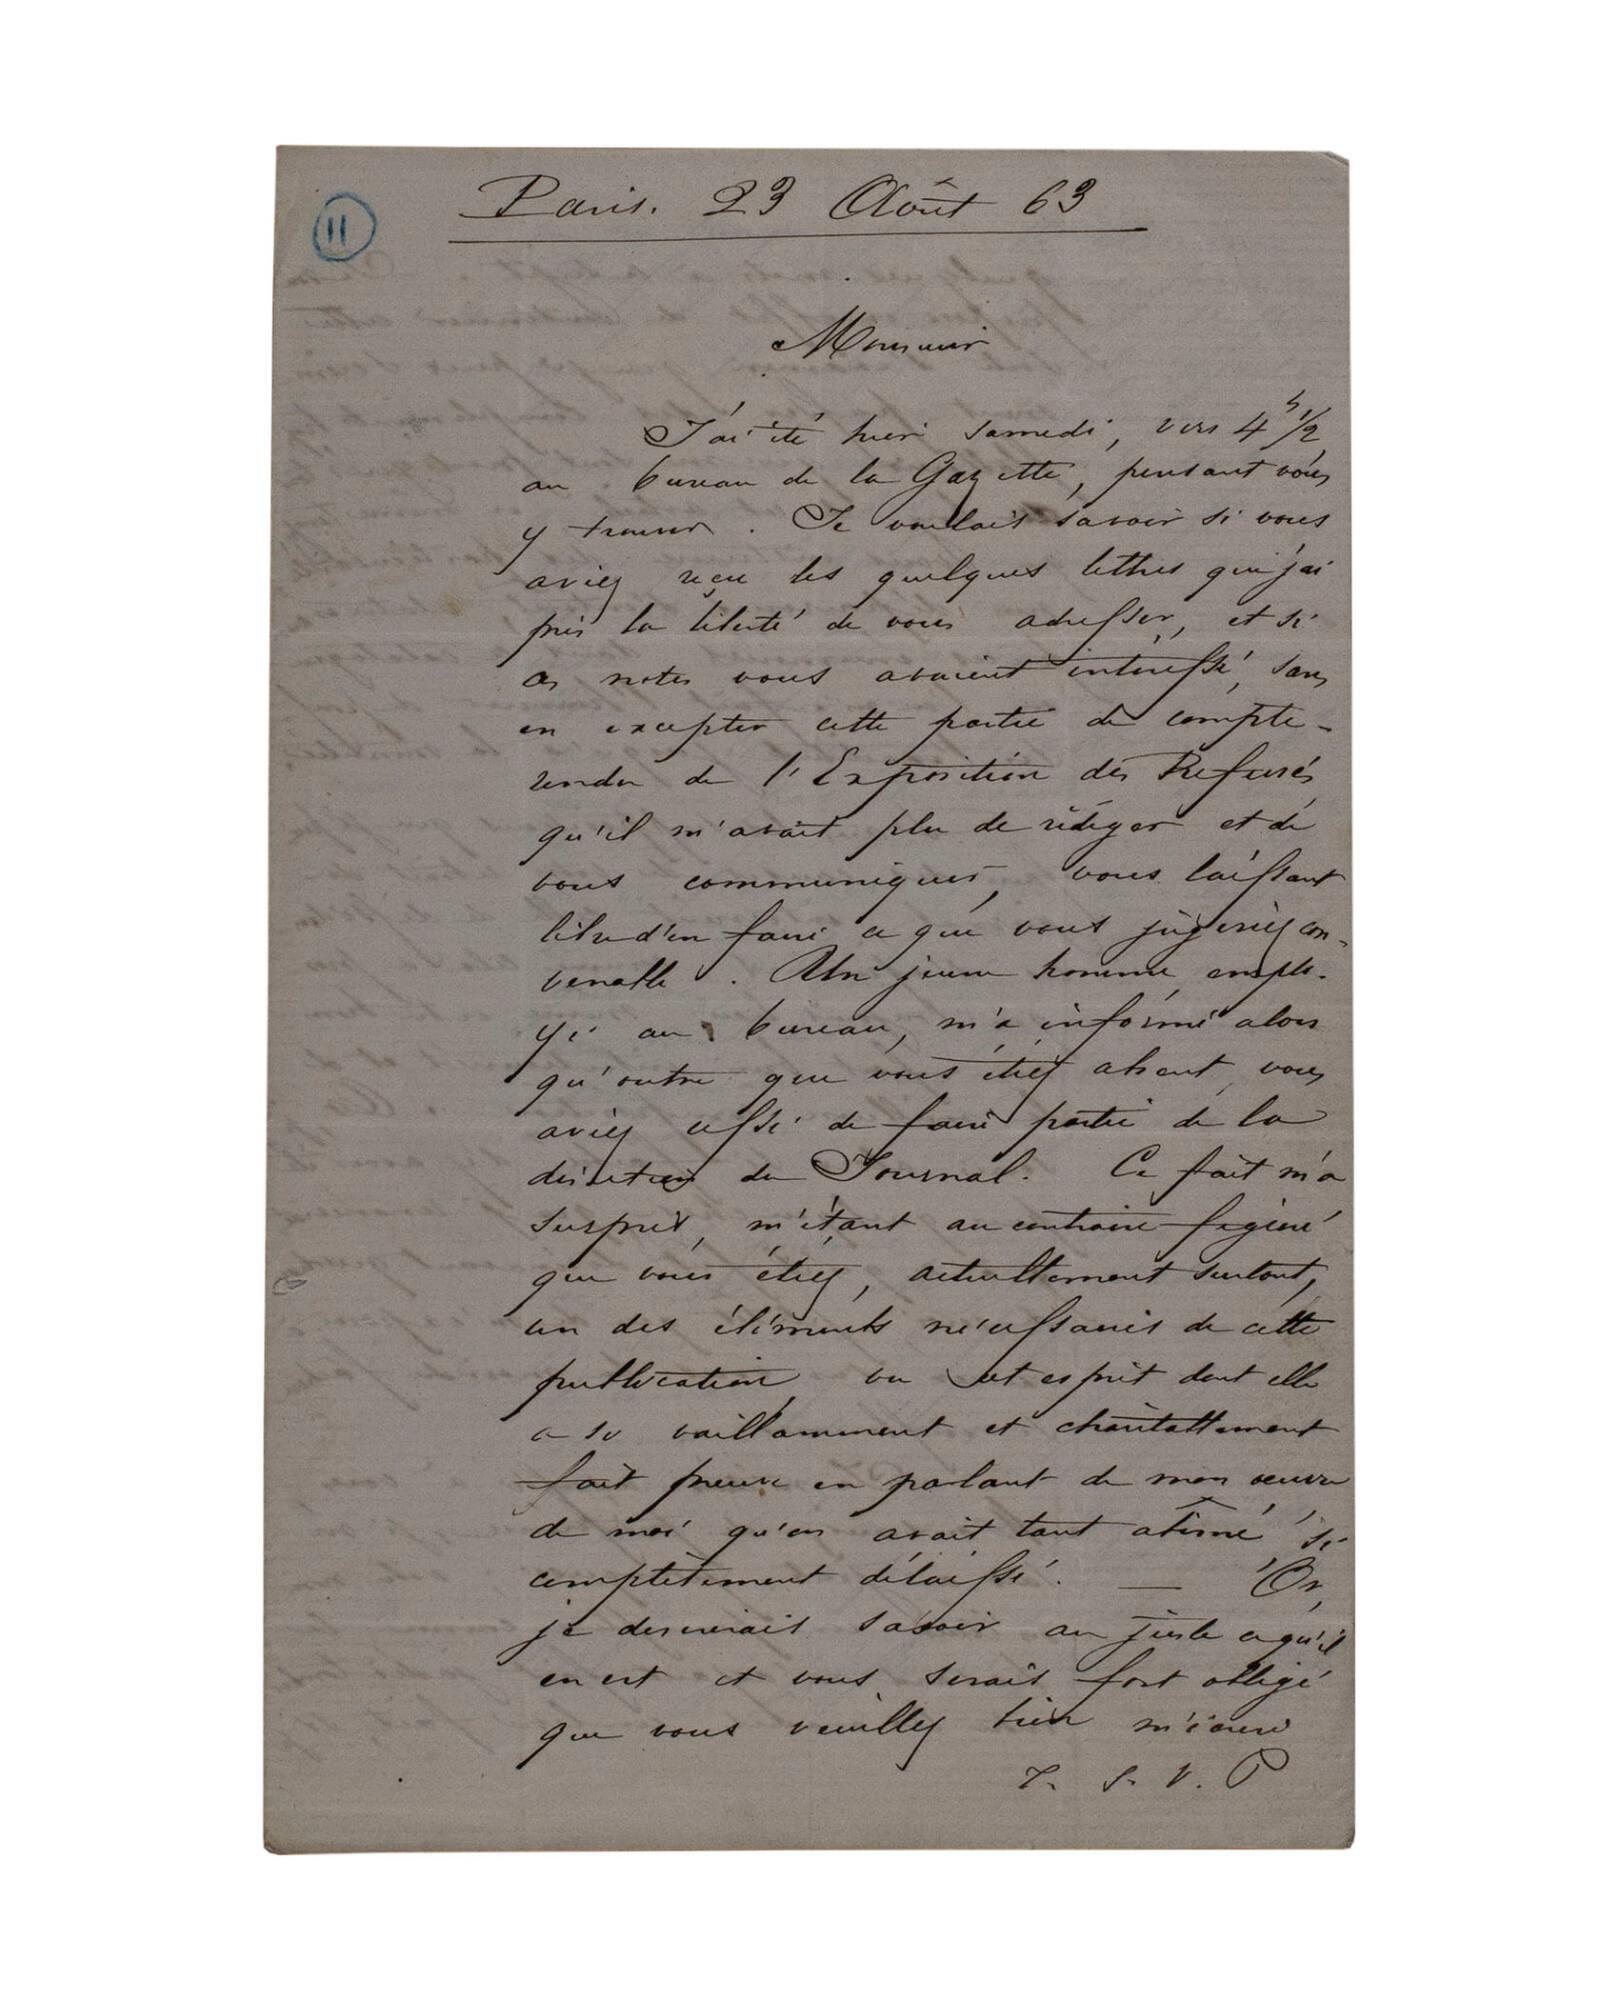 11
Paris. 23 Août 63
Monsieur
J'ai été hier samedi, vers 4 h 1/2
au bureau de la Gazette, pensant vous
y trouver. Je voulais savoir si vous
aviez reçu les quelques lettres que j'ai
pris la liberté de vous adresser, et si
ces notes vous avaient intéressé, sans
en excepter cette partie de compte-
rendu de l'Exposition des Refusés
qu'il m'avait plu de rédiger et de
vous communiquer, vous laissant
libre d'en faire ce que vous jugeriez con-
venable. Un jeune homme, emplo-
yé au bureau, m'a informé alors
qu'outre que vous étiez absent, vous
aviez cessé de faire partie de la
direction du Journal. Ce fait m'a
surpris, m'étant au contraire figuré
que vous étiez, actuellement surtout,
un des éléments nécessaires de cette
publication, vu cet esprit dont elle
a su vaillamment et charitablement
fait preuve en parlant de mon œuvre
de moi qu'on avait tant abîmé si
complètement délaissé. — Or,
je désirerais savoir au juste ce qu'il
en est et vous serais fort obligé
que vous veuillez bien m'écrire
T. S. V. P